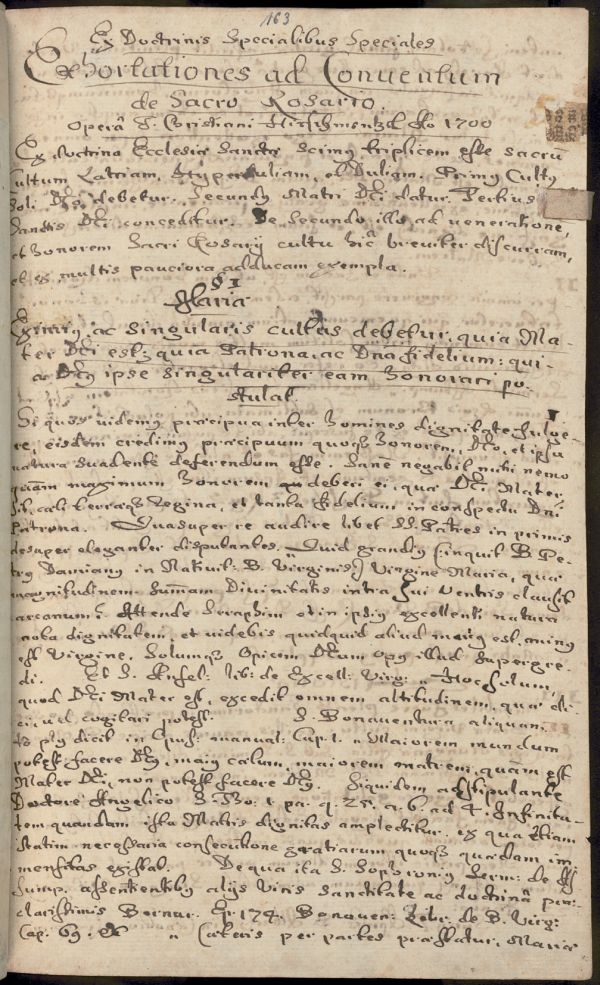 163
Ex Doctrinis Specialibus Speciales
Exhortationes ad Conventum
de Sacro Rosario.
Operâ P. Christiani Hirschmentzl Ao 1700
Ex doctrina Ecclesiæ Sanctæ Scimus triplicem esse sacru
Cultum Latriam, Hyperduliam, et Duliam. Primus Cultus
Soli Deo debetur. Secundus Matri Dei datur. Tertius
Sanctis Dei conceditur. De Secundo illo, ad veneratione,
et honorem Sacri Rosarij cultu hic breviter discurram,
et ex multis pauciora adducam exempla.
§ 1
Maria
Eximius ac singularis cultus debetur. quia Ma-
ter Dei est; quia Patrona, ac Dna fidelium: qui-
a Deus ipse singulariter eam honorari po-
stulat.
Si quos videmus præcipua inter homines dignitate fulge-
re, eisdem credimus præcipuum quoq; honorem, Deo, et ipsa
natura suadente deferendum esse. Sanè negabit mihi nemo
quàm maximum honorem deberi ei, quæ Dei Mater
sit, cæli terræq; Regina, et tanta fidelium in conspectu Dni
Patrona. Qua super re audire libet SS. Patres in primis
desuper eleganter disputantes. Quid grandius (inquit B. Pe-
trus Damianus in Nativit: B. Virginis) Virgine Maria, quæ
magnitudinem summam Divinitatis intra sui Ventris clausit
arcanum? Attende Seraphim et in ipsius excellentis natura
nota dignitatem, et videbis quidquid aliud maius est, minus
est Virgine, Solumq; Opificem Deum opus illud supergre-
di. Et S. Ansel: lib: de Excell: Virg: „ Hoc solum,
quod Dei Mater est, excedit omnem altitudinem, quæ di-
ci, vel cogitari potest. S. Bonaventura aliquan-
to plus dicit in Opus: manual: Cap. 1. „ Maiorem mundum
potest facere Deus, maius cælum, maiorem matrem, quàm est
Mater Dei, non potest facere Deus. Siquidem adstipulante
Doctore Angelico S. Tho: 1. pa. q. 25. a. 6. ad 4. Infinita-
tem quandam ista Matris dignitas amplectitur. ex qua etiam
statim necessaria consecutione gratiarum quoq; quædam im-
mensitas existat. De qua ita S. Sophronius Serm: de Ass
Sump. assentientibus alijs Viris Sanctitate ac doctrinâ præ-
clarissimis Bernar. Ep. 174. Bonaven: de B. Virg:
Cap. 69. „ Cæteris per partes præstatur, Mariæ